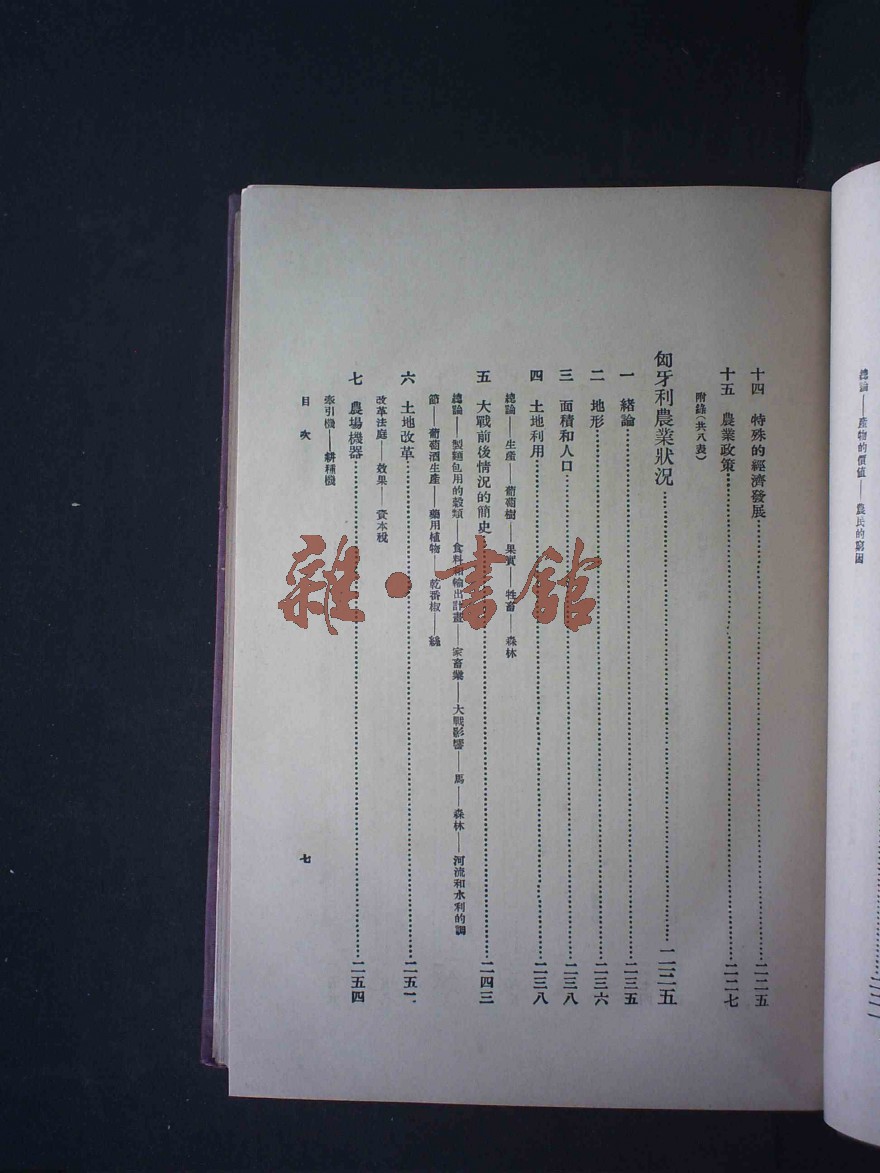 總論——產物的價值——農民的窮困
十四　特殊的經濟發展……二二五
十五　農業政策……二二七
附錄(共八表)
匈牙利農業狀況……二三五
一　緒論……二三五
二　地形……二三六
三　面積和人口……二三八
四　土地利用……二三八
總論——生產——葡萄樹——果實——牲畜——森林
五　大戰前後情況的簡史……二四三
總論——製麵包用的穀類——食料和輸出計畫——家畜業——大戰影響——馬——森林——河流和水利的調
節——葡萄酒生產——藥用植物——乾番椒——絲
六　土地改革……二五一
改革法庭——效果——資本稅
七　農場機器……二五四
牽引機——耕種機
目次
七
雜·書館